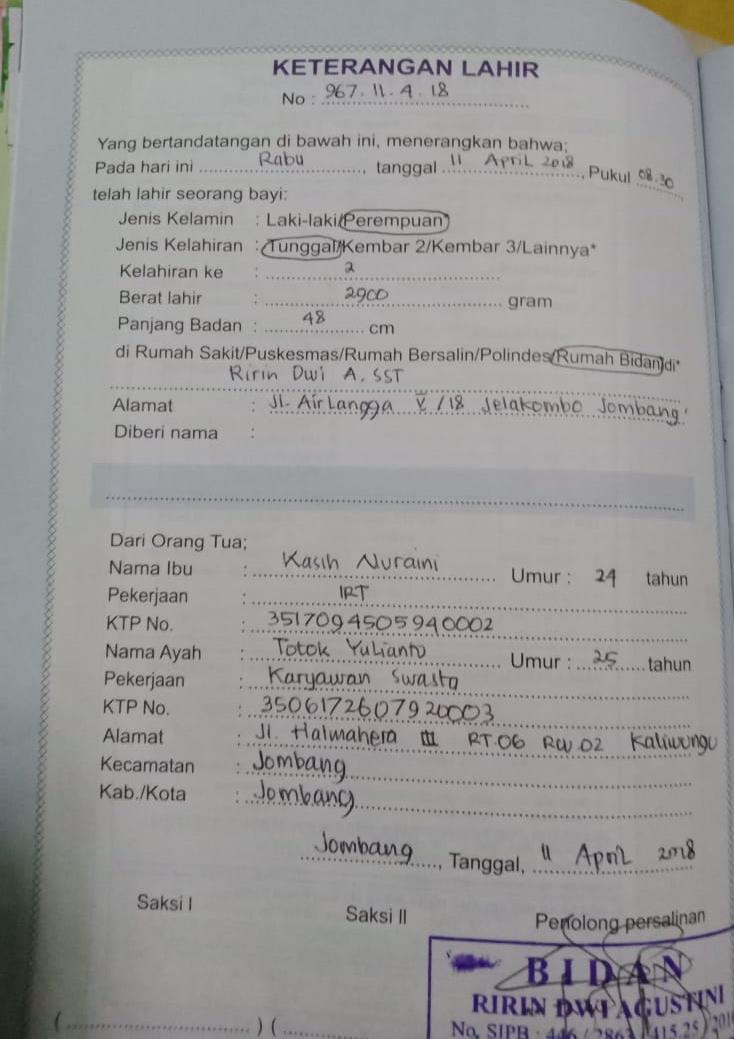 KETERANGAN LAHIR
No : 967.11.4.18
Yang bertandatangan di bawah ini, menerangkan bahwa;
Pada hari ini Rabu, tanggal 11 April 2018, Pukul 08.30
telah lahir seorang bayi:
Jenis Kelamin : Laki-laki/Perempuan*
Jenis Kelahiran : Tunggal/Kembar 2/Kembar 3/Lainnya*
Kelahiran ke : 2
Berat lahir : 2900 gram
Panjang Badan : 48 cm
di Rumah Sakit/Puskesmas/Rumah Bersalin/Polindes/Rumah Bidan di*
Ririn Dwi A, SST
Alamat : Jl. Airlangga V /18 Jelakombo Jombang
Diberi nama :
Dari Orang Tua;
Nama Ibu : Kasih Nuraini Umur : 24 tahun
Pekerjaan : IRT
KTP No. : 3517094505940002
Nama Ayah : Totok Yulianto Umur : 25 tahun
Pekerjaan : Karyawan Swasta
KTP No. : 3506172607920003
Alamat : Jl. Halmahera III RT.06 RW.02 Kaliwungu
Kecamatan : Jombang
Kab./Kota : Jombang
Jombang, Tanggal, 11 April 2018
Saksi I Saksi II Penolong persalinan
BIDAN
RIRIN DWI AGUSTINI
No. SIPB : 446 / 2863 / 415.25 /